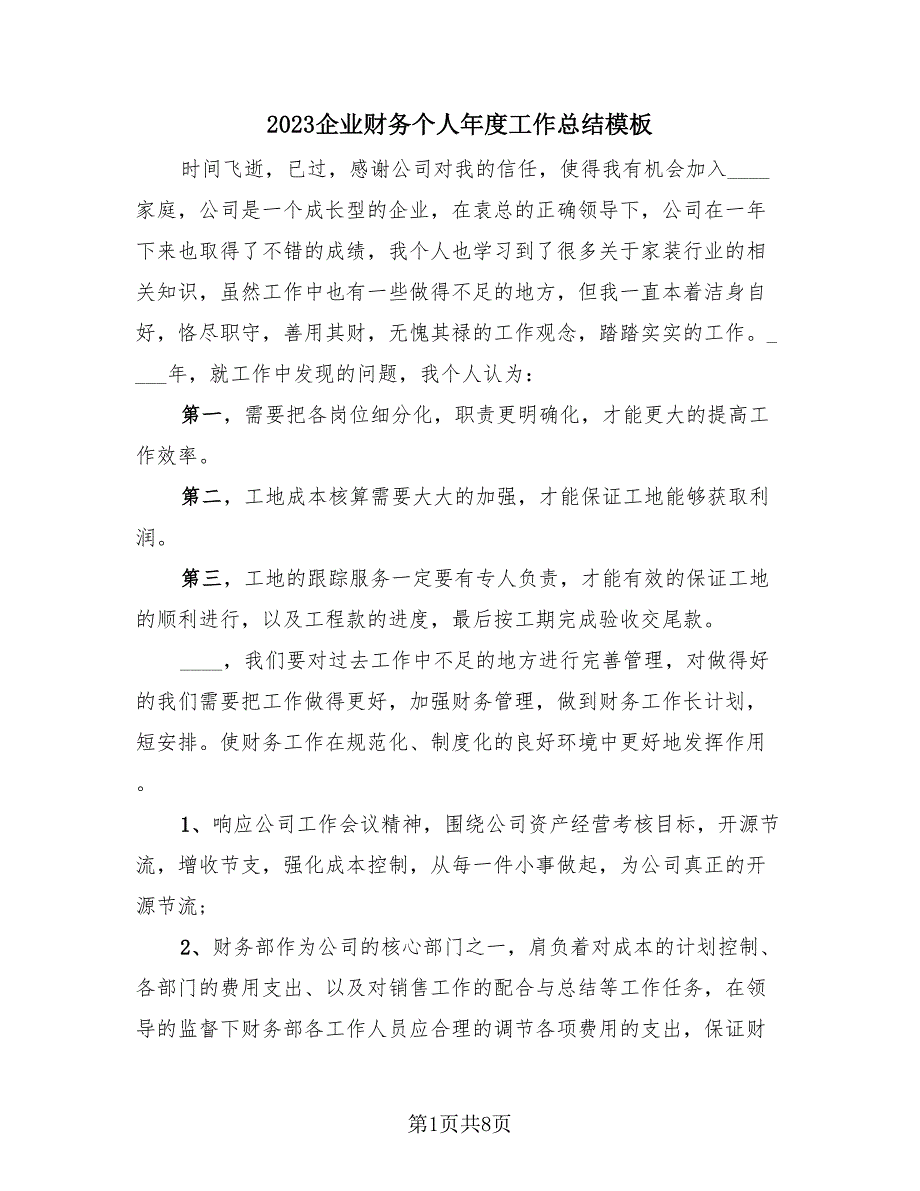 2023企业财务个人年度工作总结模板
时间飞逝，已过，感谢公司对我的信任，使得我有机会加入____
家庭，公司是一个成长型的企业，在袁总的正确领导下，公司在一年
下来也取得了不错的成绩，我个人也学习到了很多关于家装行业的相
关知识，虽然工作中也有一些做得不足的地方，但我一直本着洁身自
好，恪尽职守，善用其财，无愧其禄的工作观念，踏踏实实的工作。_
___年，就工作中发现的问题，我个人认为：
第一，需要把各岗位细分化，职责更明确化，才能更大的提高工
作效率。
第二，工地成本核算需要大大的加强，才能保证工地能够获取利
润。
第三，工地的跟踪服务一定要有专人负责，才能有效的保证工地
的顺利进行，以及工程款的进度，最后按工期完成验收交尾款。
____，我们要对过去工作中不足的地方进行完善管理，对做得好
的我们需要把工作做得更好，加强财务管理，做到财务工作长计划，
短安排。使财务工作在规范化、制度化的良好环境中更好地发挥作用
。
1、响应公司工作会议精神，围绕公司资产经营考核目标，开源节
流，增收节支，强化成本控制，从每一件小事做起，为公司真正的开
源节流;
2、财务部作为公司的核心部门之一，肩负着对成本的计划控制、
各部门的费用支出、以及对销售工作的配合与总结等工作任务，在领
导的监督下财务部各工作人员应合理的调节各项费用的支出，保证财
第1页共8页